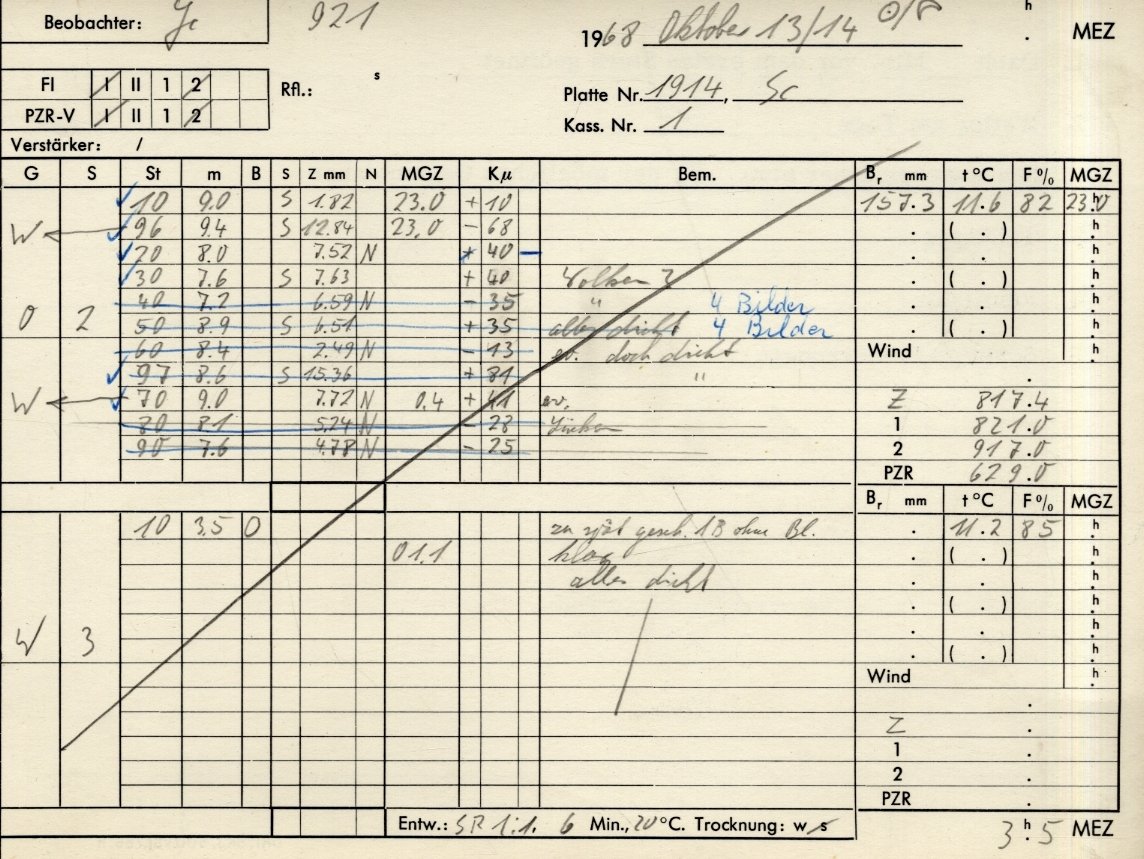 Beobachter: 921
1968 Oktober 13/14 h . MEZ
FI I II 1 2
PZR-V I II 1 2
Rfl.: s
Platte Nr. 1914, Sc
Kass. Nr. 1
Verstärker: /
G S St m B S Z mm N MGZ Kμ Bem. Br mm t °C F % MGZ
10 9.0 S 1.82 23.0 + 10 757.3 11.6 82 23.0 h
W 96 9.4 S 12.84 23.0 - 68 . ( . ) h
20 8.0 7.52 N + 40 - . . h
30 7.6 S 7.63 + 40 Wolken ? . ( . ) h
40 7.2 6.59 N - 35 " 4 Bilder . . h
O 2 50 8.9 S 6.51 + 35 alles dicht 4 Bilder . ( . ) h
60 8.4 2.49 N - 13 ev. doch dicht Wind h
97 8.6 S 15.36 + 81 " .
W 70 9.0 7.72 N 0.4 + 41 ev. Z 817.4
80 8.1 5.24 N - 28 Lücken 1 821.0
90 7.6 4.78 N - 25 2 917.0
PZR 629.0
Br mm t °C F % MGZ
10 3.5 0 zu spät gesch. 1B ohne Bl. . 11.2 85 h
01.1 klar . ( . ) h
alles dicht . . h
. ( . ) h
W 3 . . h
. ( . ) h
Wind h
.
Z .
1 .
2 .
PZR .
Entw.: SR 1:1. 6 Min., 20 °C. Trocknung: w s 3 h . 5 MEZ